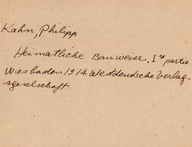 Kahn, Philipp
Heimatliche Bauweise, I re partie
Wiesbaden 1914 Westdeutsche Verlag-
sgesellschaft